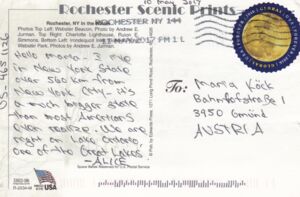 10 May 2017
Rochester Scenic Prints
Rochester, NY in the
ROCHESTER NY 144
11 MAY 2017 PM 1 L
Photos Top Left: Webster Beacon, Photo by Andrew E.
Jurman. Top Right: Charlotte Lighthouse,
Simmons. Bottom Left:
Webster Park. Photos by Andrew E. Jurman.
US-4651126
Hello Maria - I live
in New York State
over 560 km from
New York City - it's
a much bigger state
than most Americans
even realize. We are
right on Lake Ontario,
one of the Great Lakes
-ALICE
To:
Maria Köck
Bahnhofstraße 1
3950 Gmünd
AUSTRIA
USA